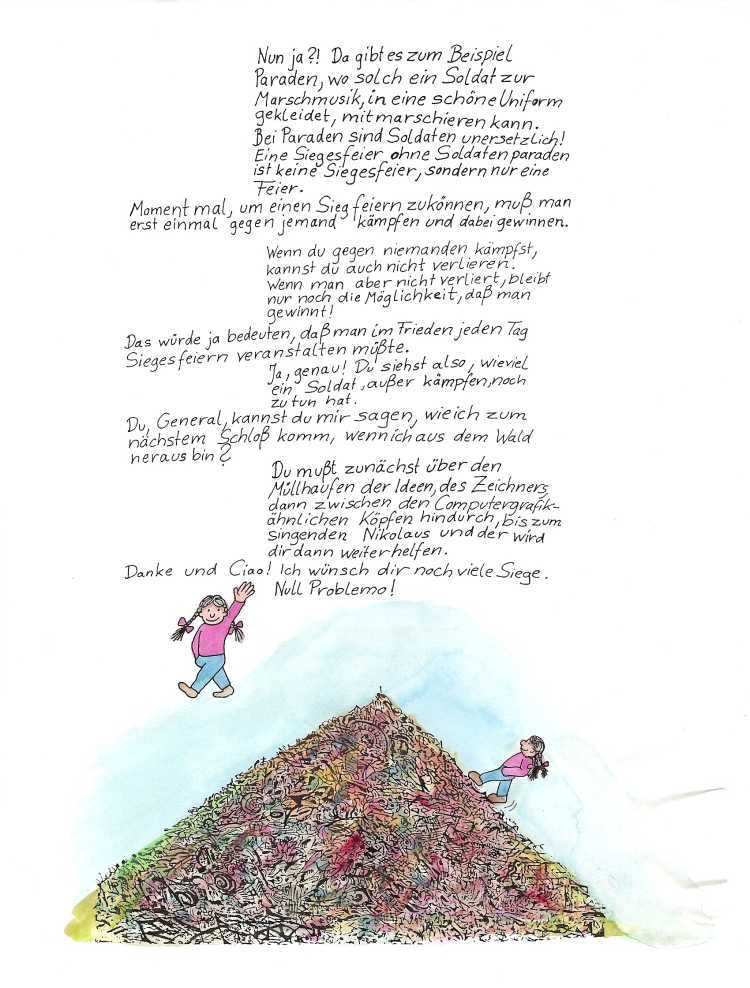 Nun ja?! Da gibt es zum Beispiel
Paraden, wo solch ein Soldat zur
Marschmusik, in eine schöne Uniform
gekleidet, mitmarschieren kann.
Bei Paraden sind Soldaten unersetzlich!
Eine Siegesfeier ohne Soldatenparaden
ist keine Siegesfeier, sondern nur eine
Feier.
Moment mal, um einen Sieg feiern zukönnen, muß man
erst einmal gegen jemand kämpfen und dabei gewinnen.
Wenn du gegen niemanden kämpfst,
kannst du auch nicht verlieren.
Wenn man aber nicht verliert, bleibt
nur noch die Möglichkeit, daß man
gewinnt!
Das würde ja bedeuten, daß man im Frieden jeden Tag
Siegesfeiern veranstalten müßte.
Ja, genau! Du siehst also, wieviel
ein Soldat, außer kämpfen, noch
zu tun hat.
Du, General, kannst du mir sagen, wie ich zum
nächstem Schloß komm, wenn ich aus dem Wald
heraus bin?
Du mußt zunächst über den
Müllhaufen der Ideen, des Zeichners,
dann zwischen den Computergrafik-
ähnlichen Köpfen hindurch, bis zum
singenden Nikolaus und der wird
dir dann weiterhelfen.
Danke und Ciao! Ich wünsch dir noch viele Siege.
Null Problemo!